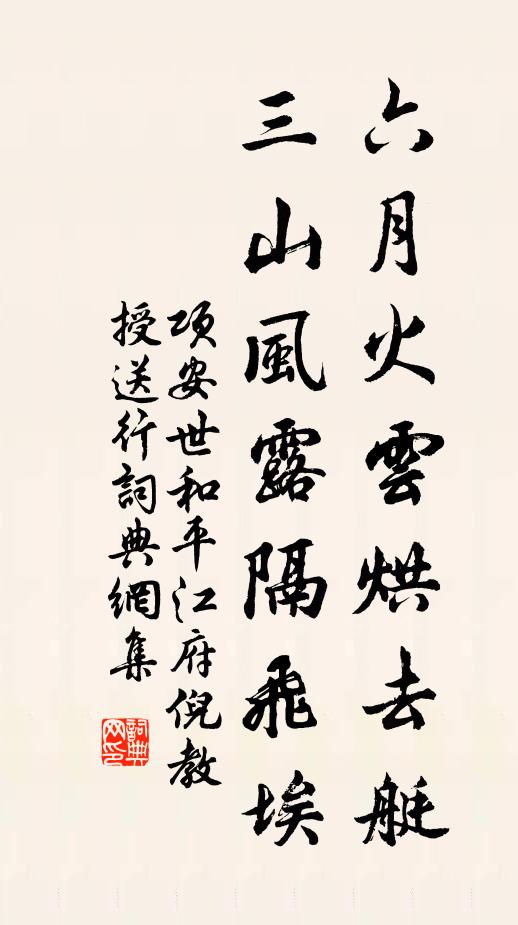 六月火雲烘去艇
三山風露隔飛埃
項安世和平江府倪教
授送行詞典網集
詞典网印